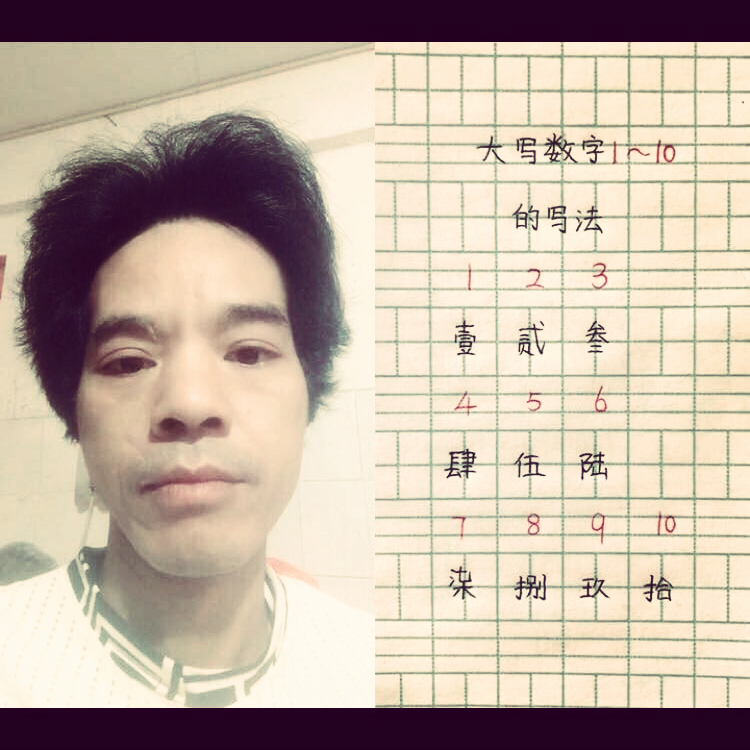 大写数字1~10
的写法
1 2 3
壹 贰 叁
4 5 6
肆 伍 陆
7 8 9 10
柒 捌 玖 拾